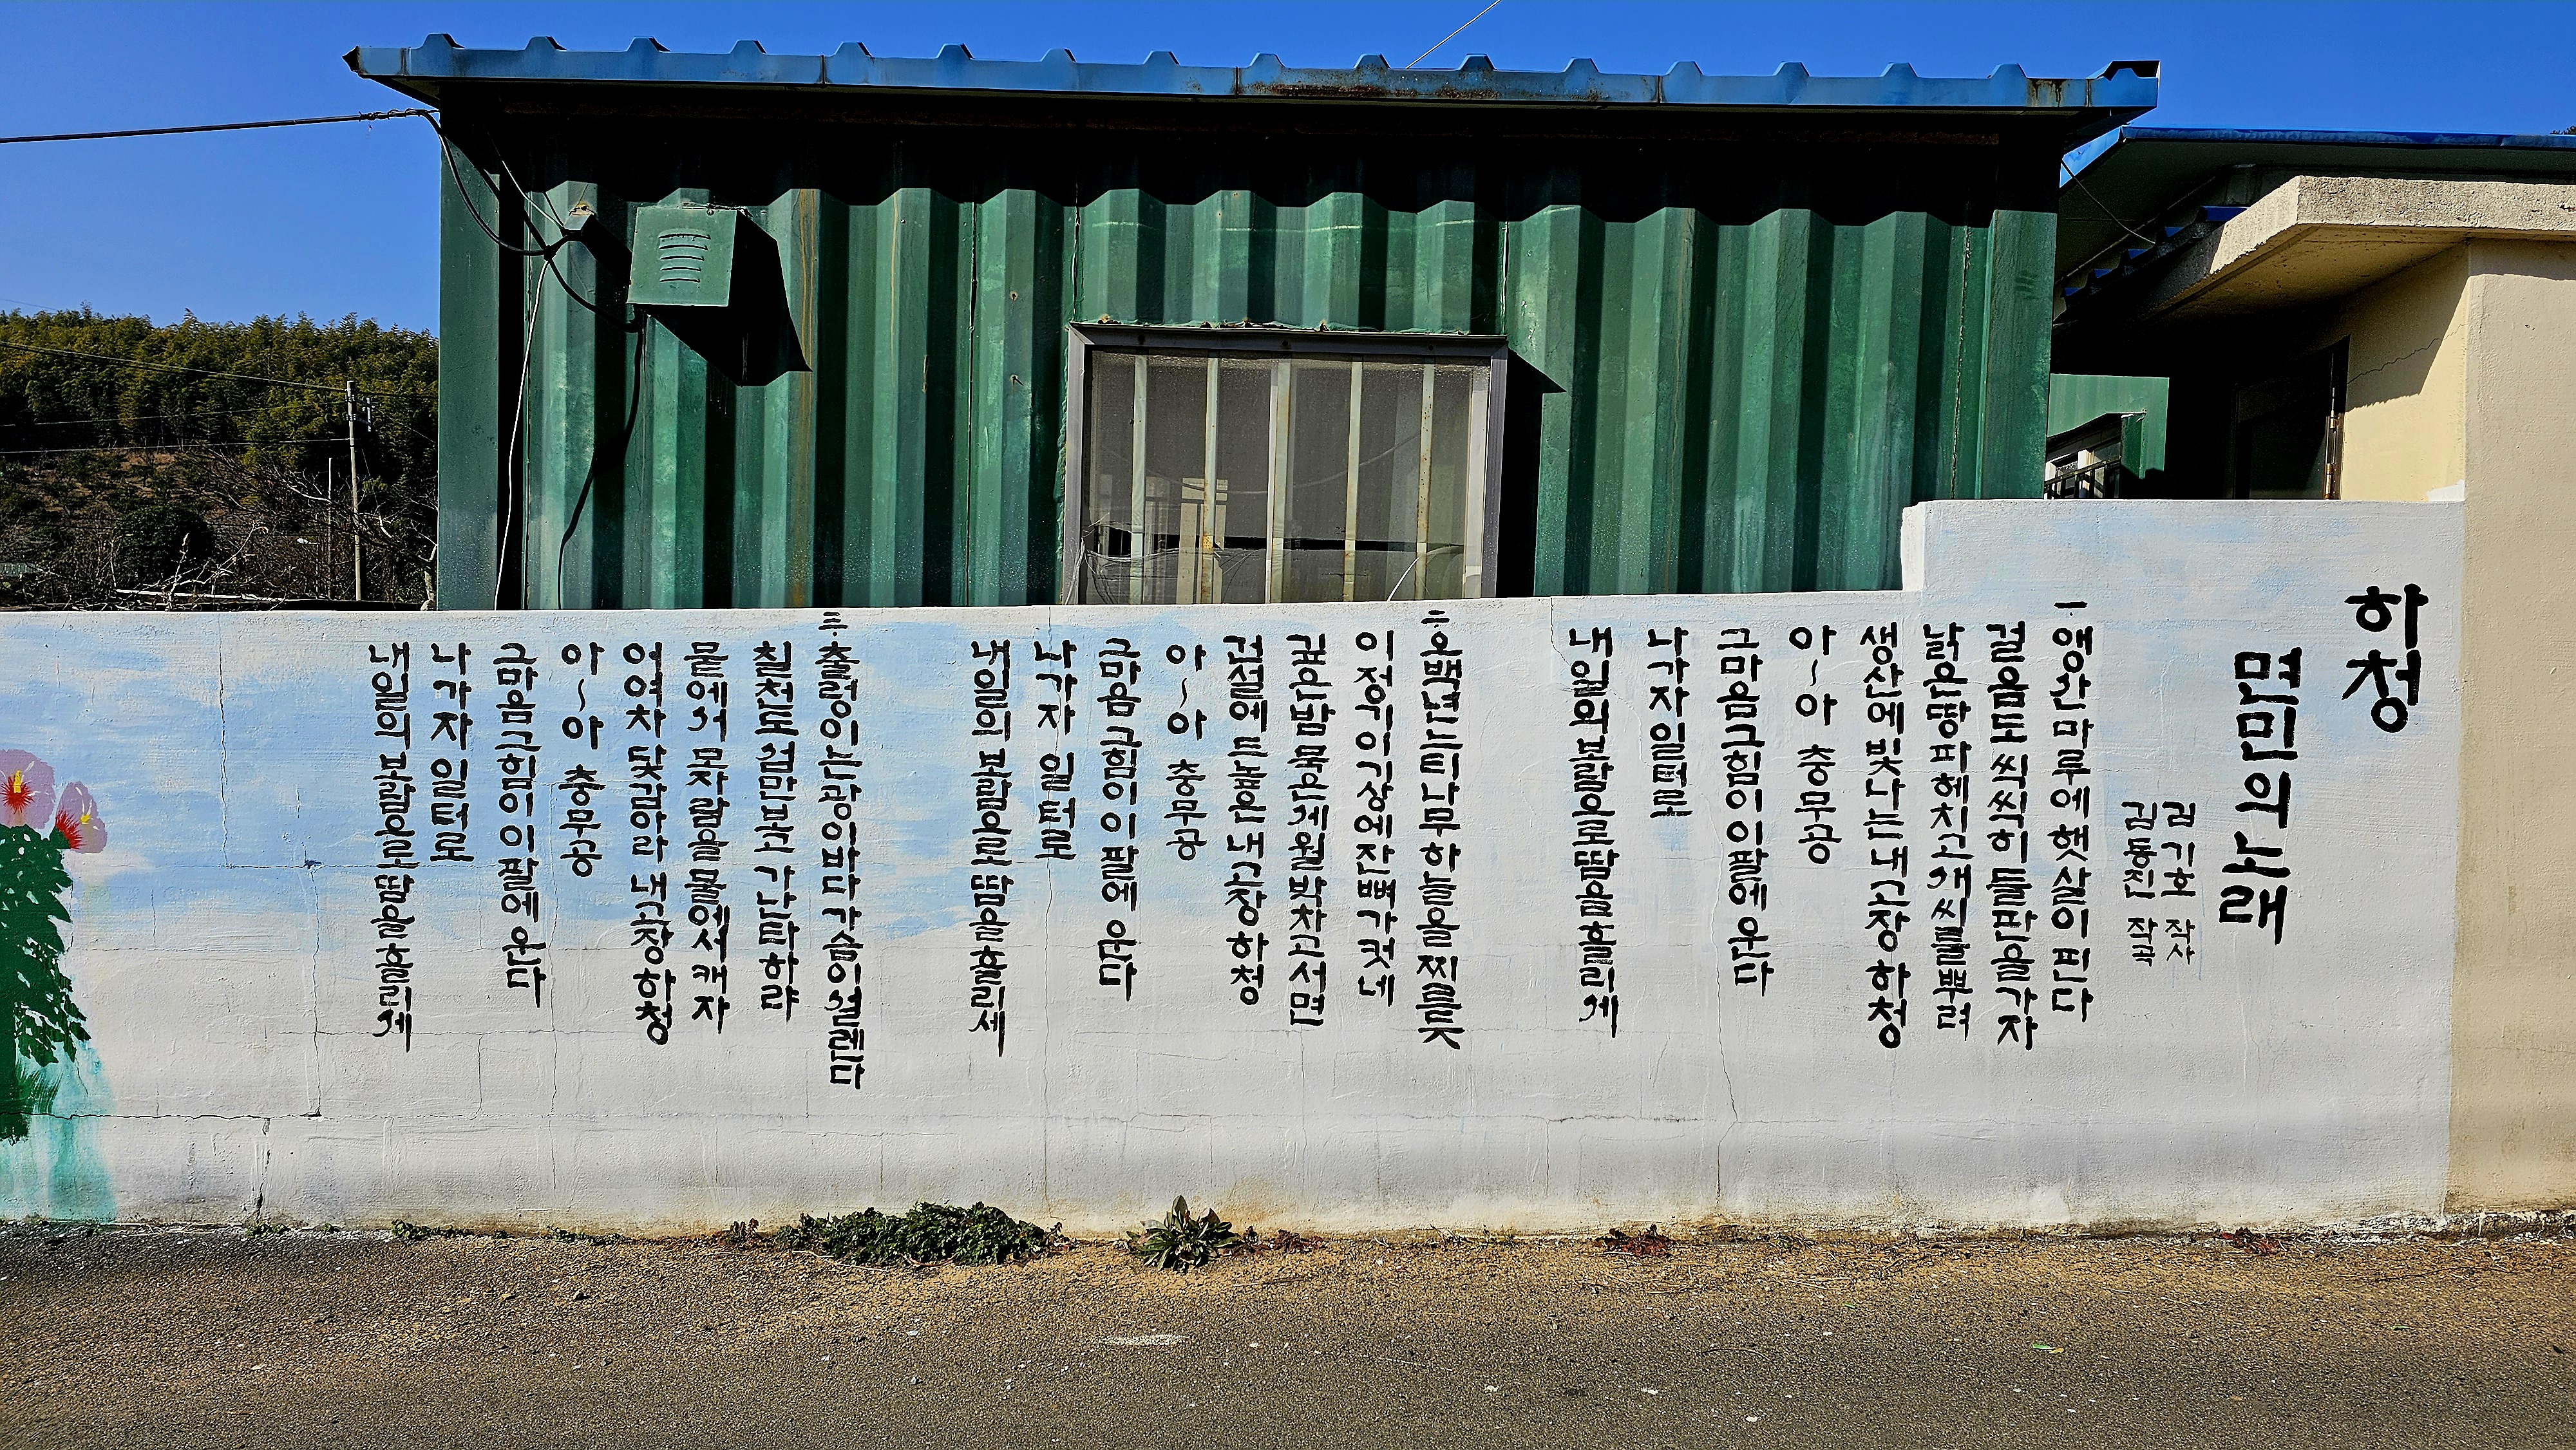 하청
면민의 노래
김기호 작사
김동진 작곡
一. 앵산마루에 햇살이 핀다
걸음도 씩씩히 들판을 가자
낡은땅 파헤치고 새씨를 뿌려
생산에 빛나는 내고장 하청
아~아 충무공
그마음 그힘이 이팔에 운다
나가자 일터로
내일의 보람으로 땀을 흘리세
二. 오백년 느티나무 하늘을 찌를듯
이정기 이기상에 잔뼈가 컷네
깊은밤 묵은세월 박차고서면
건설에 드높은 내고장 하청
아~아 충무공
그마음 그힘이 이팔에 운다
나가자 일터로
내일의 보람으로 땀을 흘리세
三. 출렁이는 광이바다 가슴이 설렌다
칠천도 섬만보고 가난타하랴
뭍에서 모자람을 물에서 캐자
어여차 닻감아라 내고장 하청
아~아 충무공
그마음 그힘이 이팔에 운다
나가자 일터로
내일의 보람으로 땀을 흘리세